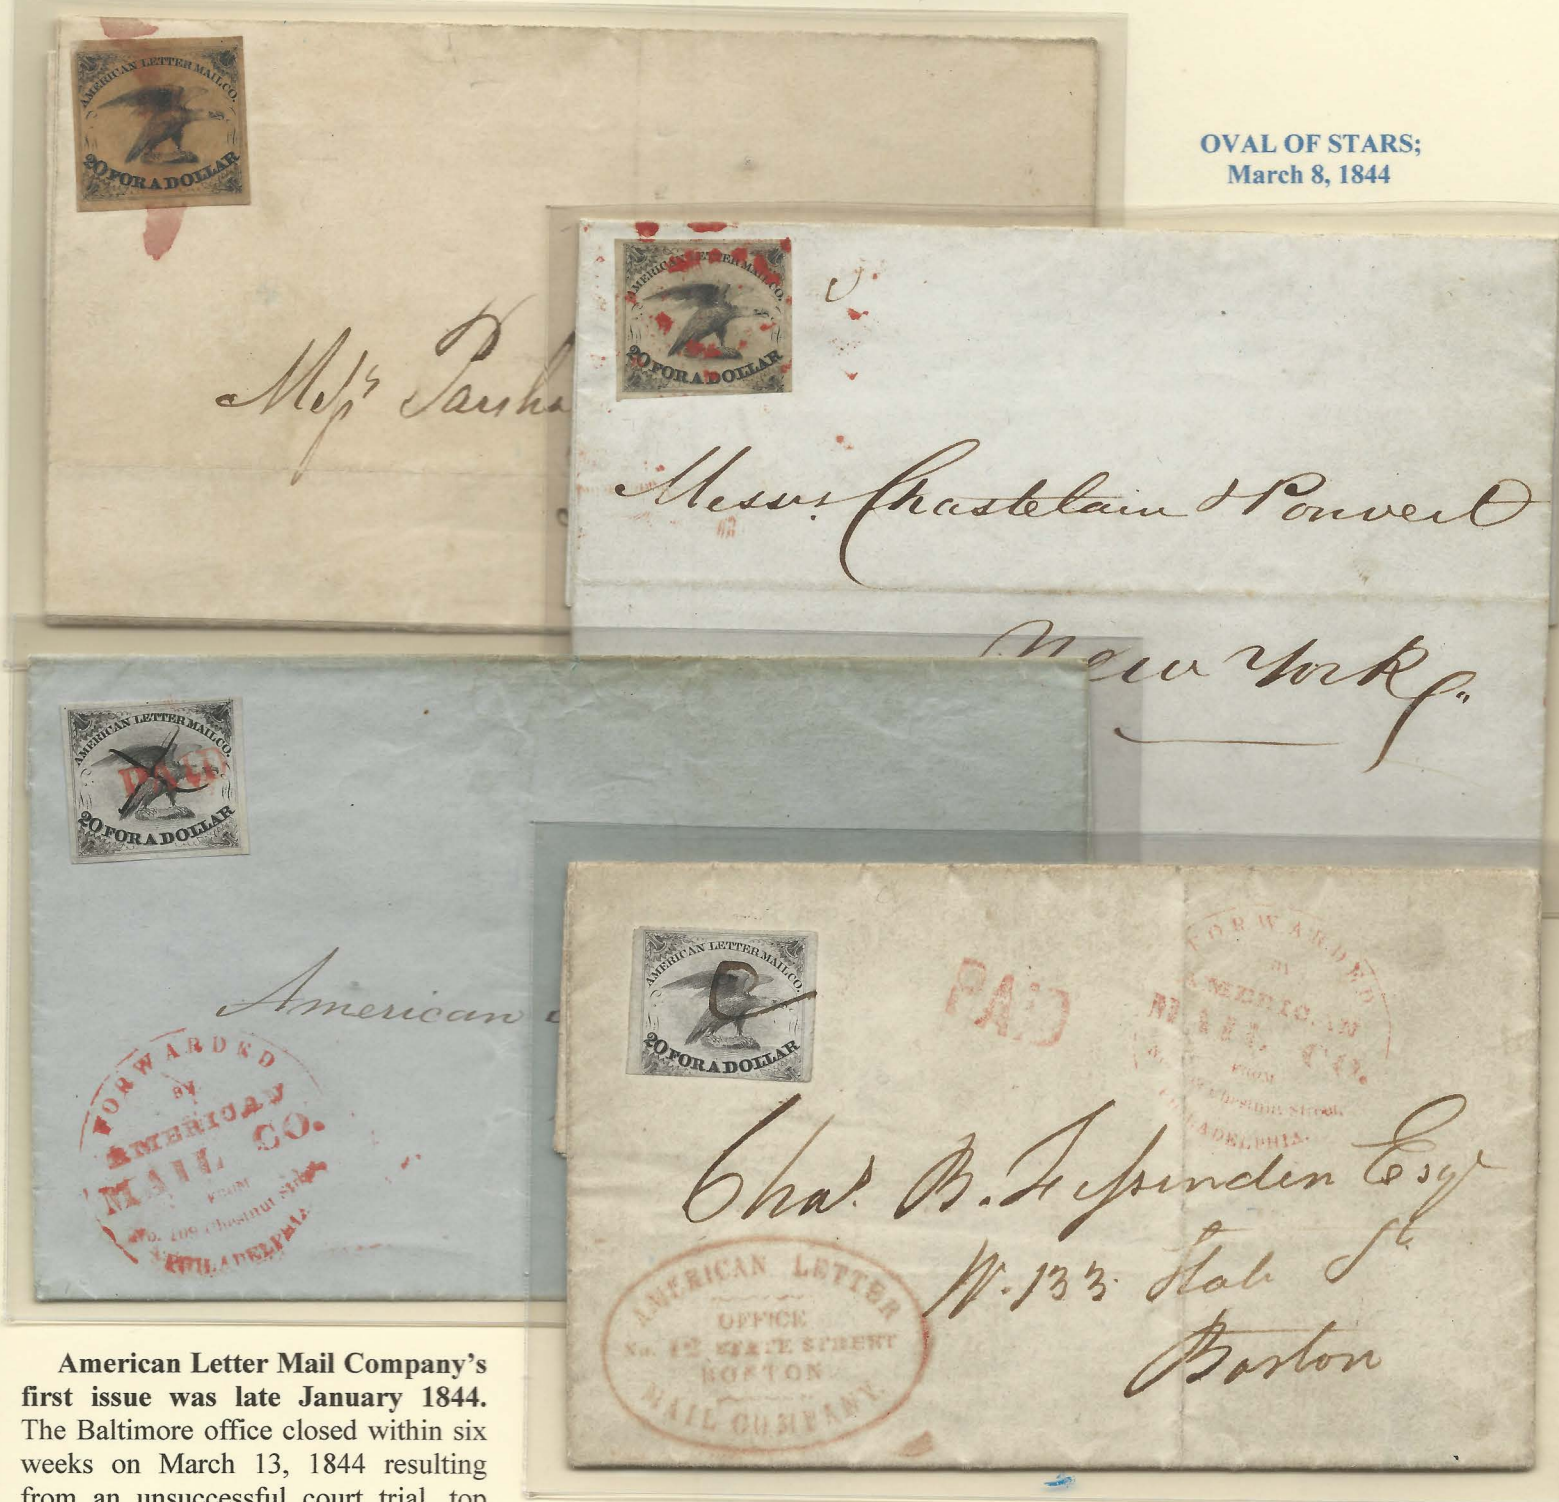 AMERICAN LETTER MAIL CO.
20 FOR A DOLLAR
Messrs
OVAL OF STARS;
March 8, 1844
AMERICAN LETTER MAIL CO.
20 FOR A DOLLAR
Messrs. Chastelain & Ponvert
New York
AMERICAN LETTER MAIL CO.
PAID
20 FOR A DOLLAR
American
FORWARDED
BY
AMERICAN
MAIL CO.
FROM
No. 109 Chestnut Street
PHILADELPHIA
AMERICAN LETTER MAIL CO.
20 FOR A DOLLAR
PAID
FORWARDED
BY
AMERICAN
MAIL CO.
FROM
Chestnut Street
PHILADELPHIA.
Chas. B. Fessenden Esqr
No. 133 State St
Boston
AMERICAN LETTER
OFFICE
No. 12 STATE STREET
BOSTON
MAIL COMPANY
American Letter Mail Company's
first issue was late January 1844.
The Baltimore office closed within six
weeks on March 13, 1844 resulting
from an unsuccessful court trial, top